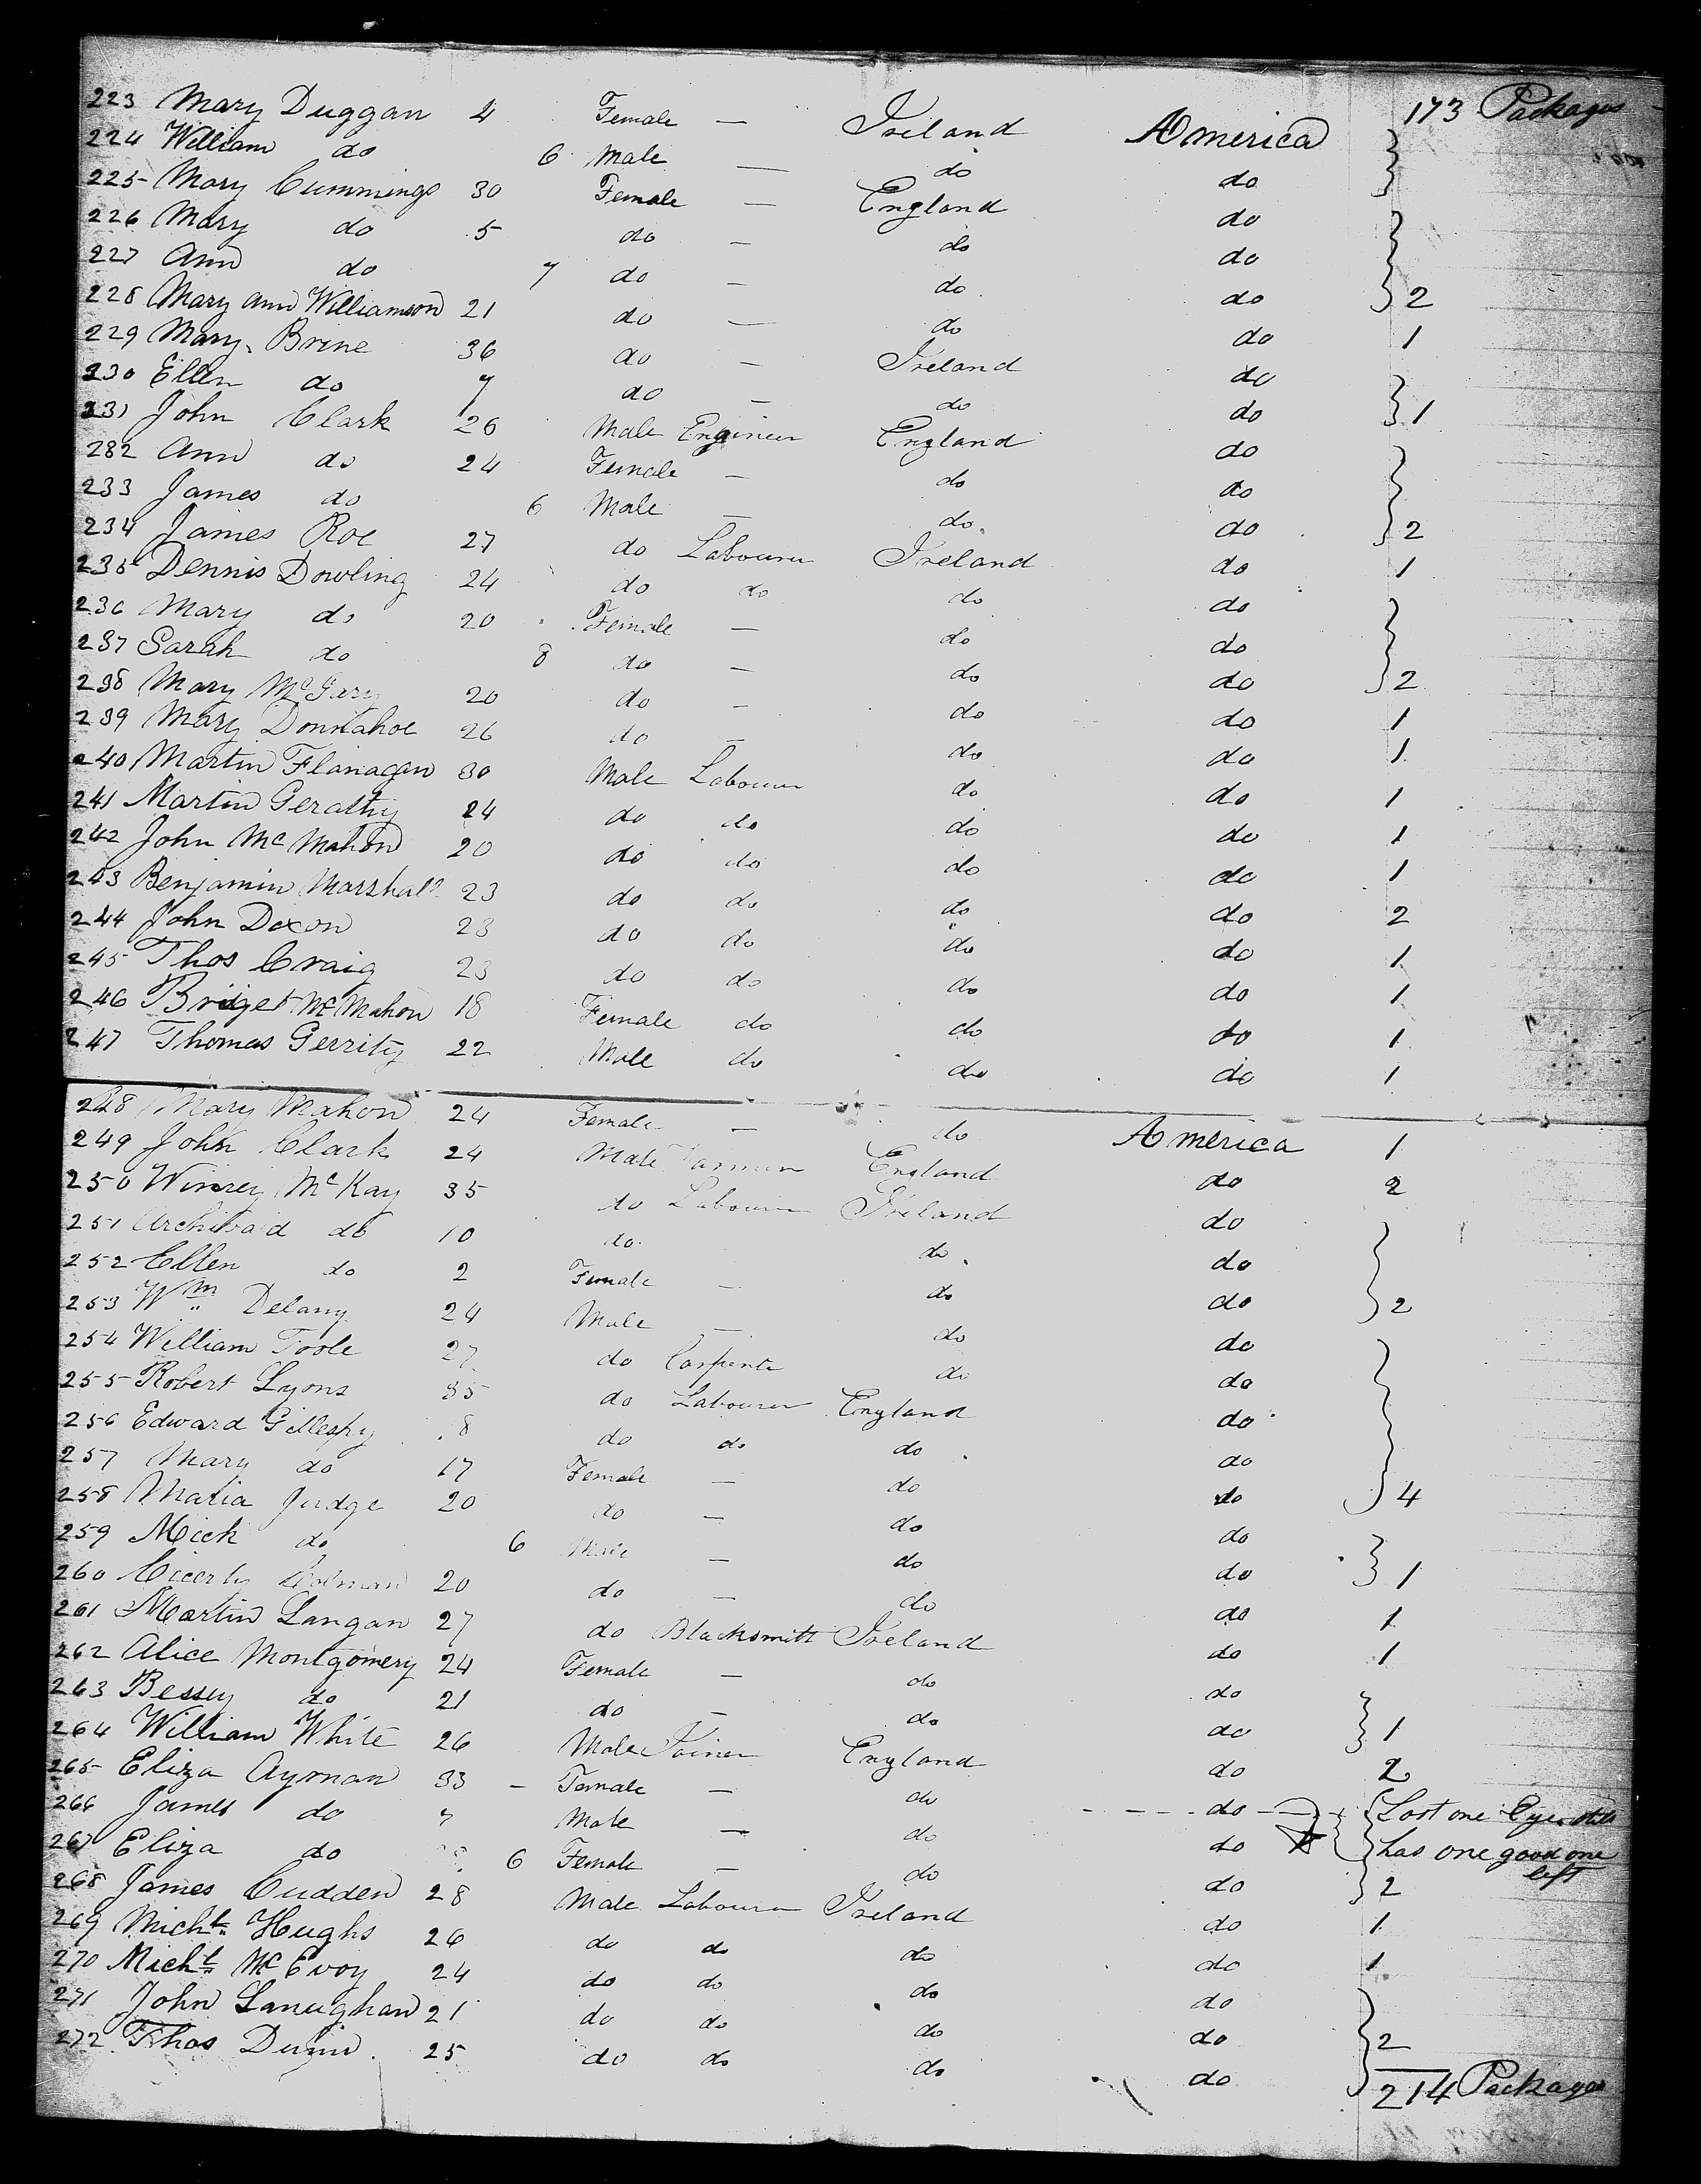 173 Packages
223 Mary Duggan 4 Female — Ireland America
224 William do 6 Male — do do
225 Mary Cummings 30 Female — England do
226 Mary do 5 do — do do
227 Ann do 7 do — do do 2
228 Mary Ann Williamson 21 do — do do 1
229 Mary Brine 36 do — Ireland do
230 Ellen do 7 do — do do 1
231 John Clark 26 Male Engineer England do
232 Ann do 24 Female — do do
233 James do 6 Male — do do 2
234 James Roe 27 do Labourer Ireland do 1
235 Dennis Dowling 24 do do do do
236 Mary do 20 Female — do do
237 Sarah do 8 do — do do 2
238 Mary McGary 20 do — do do 1
239 Mary Donnahoe 26 do — do do 1
240 Martin Flanagan 30 Male Labourer do do 1
241 Martin Gerathy 24 do do do do 1
242 John McMahon 20 do do do do 1
243 Benjamin Marshall 23 do do do do 2
244 John Dixon 23 do do do do 1
245 Thos Craig 23 do do do do 1
246 Bridget McMahon 18 Female do do do 1
247 Thomas Gerrity 22 Male do do do 1
248 Mary Mahon 24 Female — do America 1
249 John Clark 24 Male Farmer England do 2
250 McKay 35 do Labourer Ireland do
251 Archibald do 10 do do do
252 Ellen do 2 Female — do do 2
253 Wm Delany 24 Male — do do
254 William Toole 27 do Carpenter do do
255 Robert Lyons 35 do Labourer England do
256 Edward Gillespy 8 do do do do
257 Mary do 17 Female — do do 4
258 Maria Judge 20 do — do do
259 Mick do 6 Male — do do 1
260 20 do — do do 1
261 Martin Langan 27 do Blacksmith Ireland do 1
262 Alice Montgomery 24 Female — do do
263 Bessey do 21 do — do do 1
264 William White 26 Male Joiner England do 2
265 Eliza Ayman 33 – Female — do do Lost one Eye still
266 James do Male — do do has one good one left
267 Eliza do 6 Female — do do 2
268 James Cudden 28 Male Labourer Ireland do 1
269 Michl Hughs 26 do do do do 1
270 Michl McEvoy 24 do do do do
271 John Lanughan 21 do do do do 2
272 Thos Dunn 25 do do do do
214 Packages